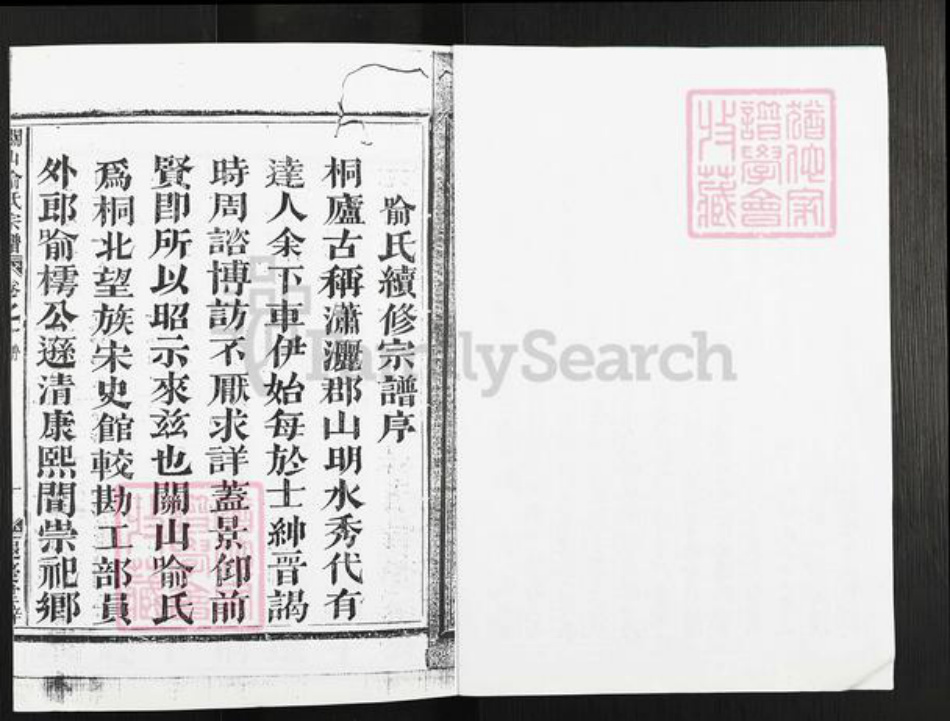 喻氏續修宗譜序
桐廬古稱瀟灑郡山明水秀代有
達人余下車伊始每於士紳晉謁
時周諮博訪不厭求詳蓋景仰前
賢卽所以昭示來茲也關山喻氏
爲桐北望族宋史館較勘工部員
外郎喻樗公遜清康熙間崇祀鄉
關山喻氏宗譜 卷之一 序
FamilySearch
譜學會